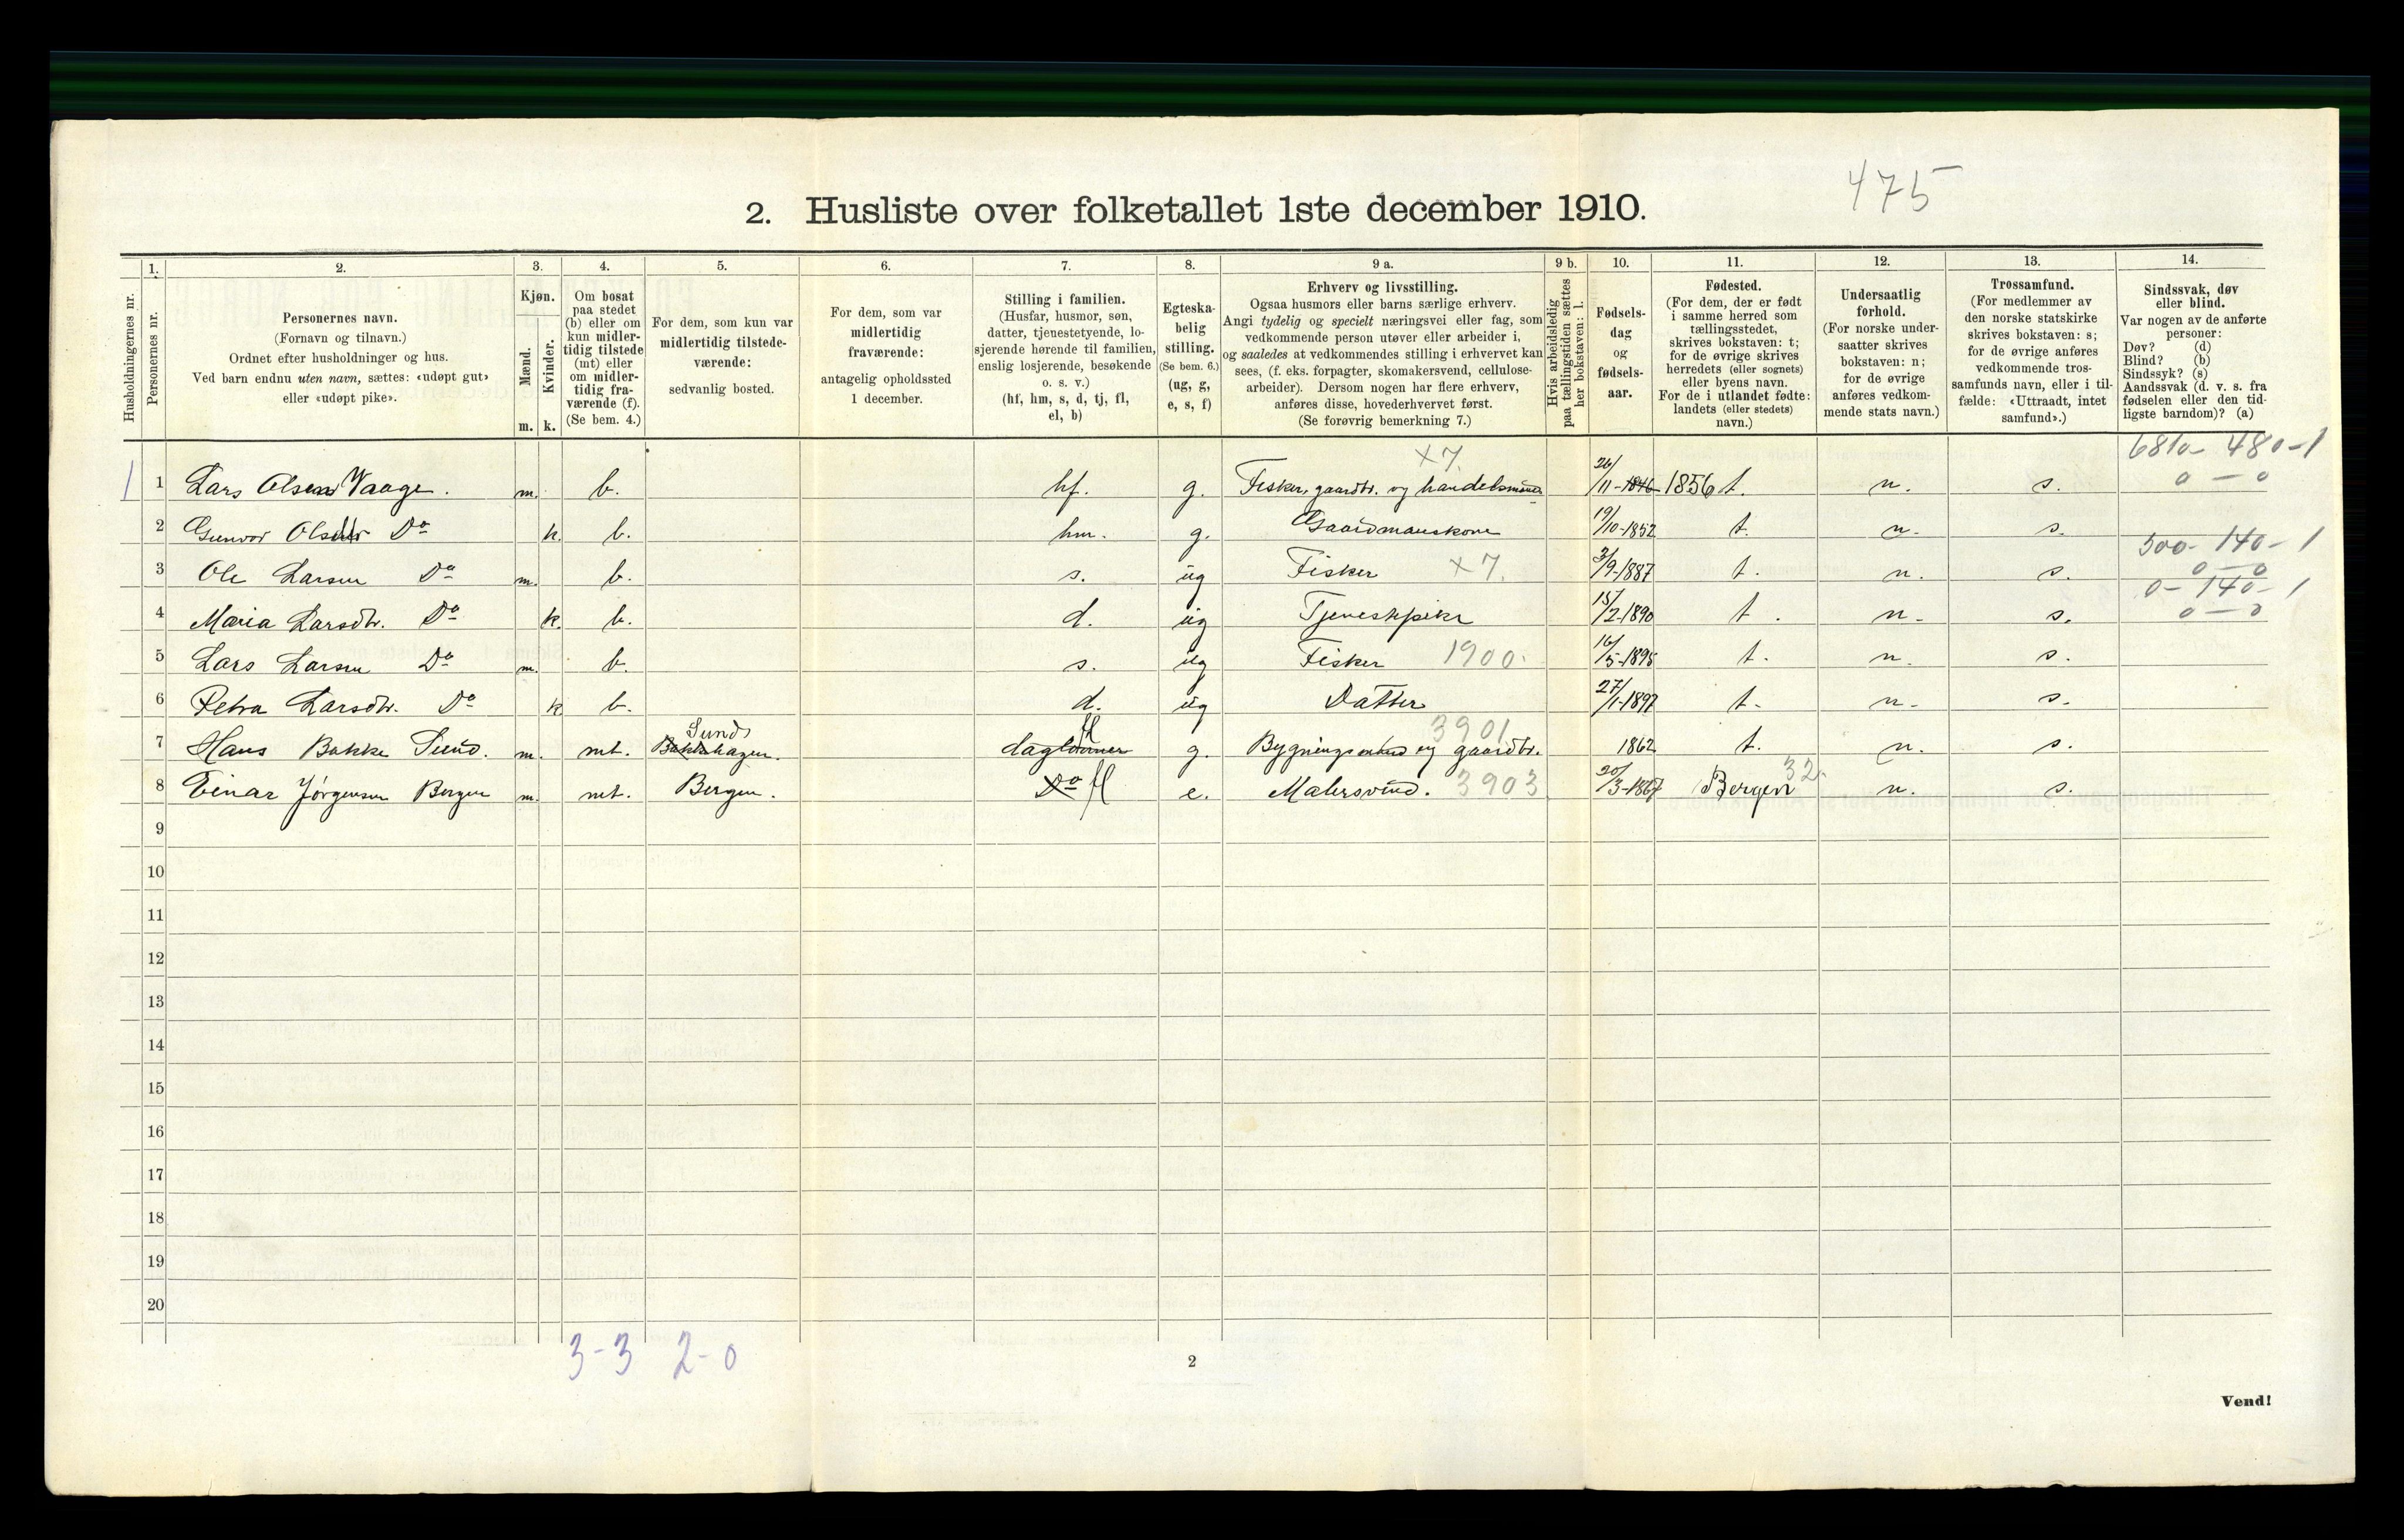 475
2. Husliste over folketallet 1ste december 1910.
Husholdningernes nr.
1.
Personernes nr.
2.
Personernes navn.
(Fornavn og tilnavn.)
Ordnet efter husholdninger og hus.
Ved barn endnu uten navn, sættes: «udøpt gut»
eller «udøpt pike».
3.
Kjøn.
Mænd.
Kvinder.
m. k.
4.
Om bosat
paa stedet
(b) eller om
kun midler-
tidig tilstede
(mt) eller
om midler-
tidig fra-
værende (f).
(Se bem. 4.)
5.
For dem, som kun var
midlertidig tilstede-
værende:
sedvanlig bosted.
6.
For dem, som var
midlertidig
fraværende:
antagelig opholdssted
1 december.
7.
Stilling i familien.
(Husfar, husmor, søn,
datter, tjenestetyende, lo-
sjerende hørende til familien,
enslig losjerende, besøkende
o. s. v.)
(hf, hm, s, d, tj, fl,
el, b)
8.
Egteska-
belig
stilling.
(Se bem. 6.)
(ug, g,
e, s, f)
9 a.
Erhverv og livsstilling.
Ogsaa husmors eller barns særlige erhverv.
Angi tydelig og specielt næringsvei eller fag, som
vedkommende person utøver eller arbeider i,
og saaledes at vedkommendes stilling i erhvervet kan
sees, (f. eks. forpagter, skomakersvend, cellulose-
arbeider). Dersom nogen har flere erhverv,
anføres disse, hovederhvervet først.
(Se forøvrig bemerkning 7.)
9 b.
Hvis arbeidsledig
paa tællingstiden sættes
her bokstaven: l.
10.
Fødsels-
dag
og
fødsels-
aar.
11.
Fødested.
(For dem, der er født
i samme herred som
tællingsstedet,
skrives bokstaven: t;
for de øvrige skrives
herredets (eller sognets)
eller byens navn.
For de i utlandet fødte:
landets (eller stedets)
navn.)
12.
Undersaatlig
forhold.
(For norske under-
saatter skrives
bokstaven: n;
for de øvrige
anføres vedkom-
mende stats navn.)
13.
Trossamfund.
(For medlemmer av
den norske statskirke
skrives bokstaven: s;
for de øvrige anføres
vedkommende tros-
samfunds navn, eller i til-
fælde: «Uttraadt, intet
samfund».)
14.
Sindssvak, døv
eller blind.
Var nogen av de anførte
personer:
Døv? (d)
Blind? (b)
Sindssyk? (s)
Aandssvak (d. v. s. fra
fødselen eller den tid-
ligste barndom)? (a)
x7. 6810- 480-1
1 1 Lars Olsen Vaage. m. b. hf. g. Fisker, gaardbr. og handelsmand 26/11-1846 1856 t. n. s. 0-0
2 Gunvor Do k. b. hm. g. Gaardmanskone 19/10-1852 t. n. s.
500- 140-1
3 Ole Larsen Do m. b. s. ug Fisker x7. 3/9-1887 t. n. s. 0-0
0-140-1
4 Maria Larsdtr. Do k. b. d. ug Tjenestpike 15/2-1890 t. n. s. 0-0
5 Lars Larsen Do m. b. s. ug Fisker 1900. 16/5-1895 t. n. s.
6 Petra Larsdtr. Do k b. d. ug Datter 27/1-1897 t. n. s.
Sunds fl 3901
7 Hans Bakke Sund. m. mt. Bakkehagen. g. Bygningsmand og gaardbr. 1862 t. n. s.
32.
8 Einar Jørgensen Bergen m. mt. Bergen. Do fl e. Malersvend. 3903 20/3-1867 Bergen n. s.
9
10
11
12
13
14
15
16
17
18
19
20
3-3 2-0
2
Vend!